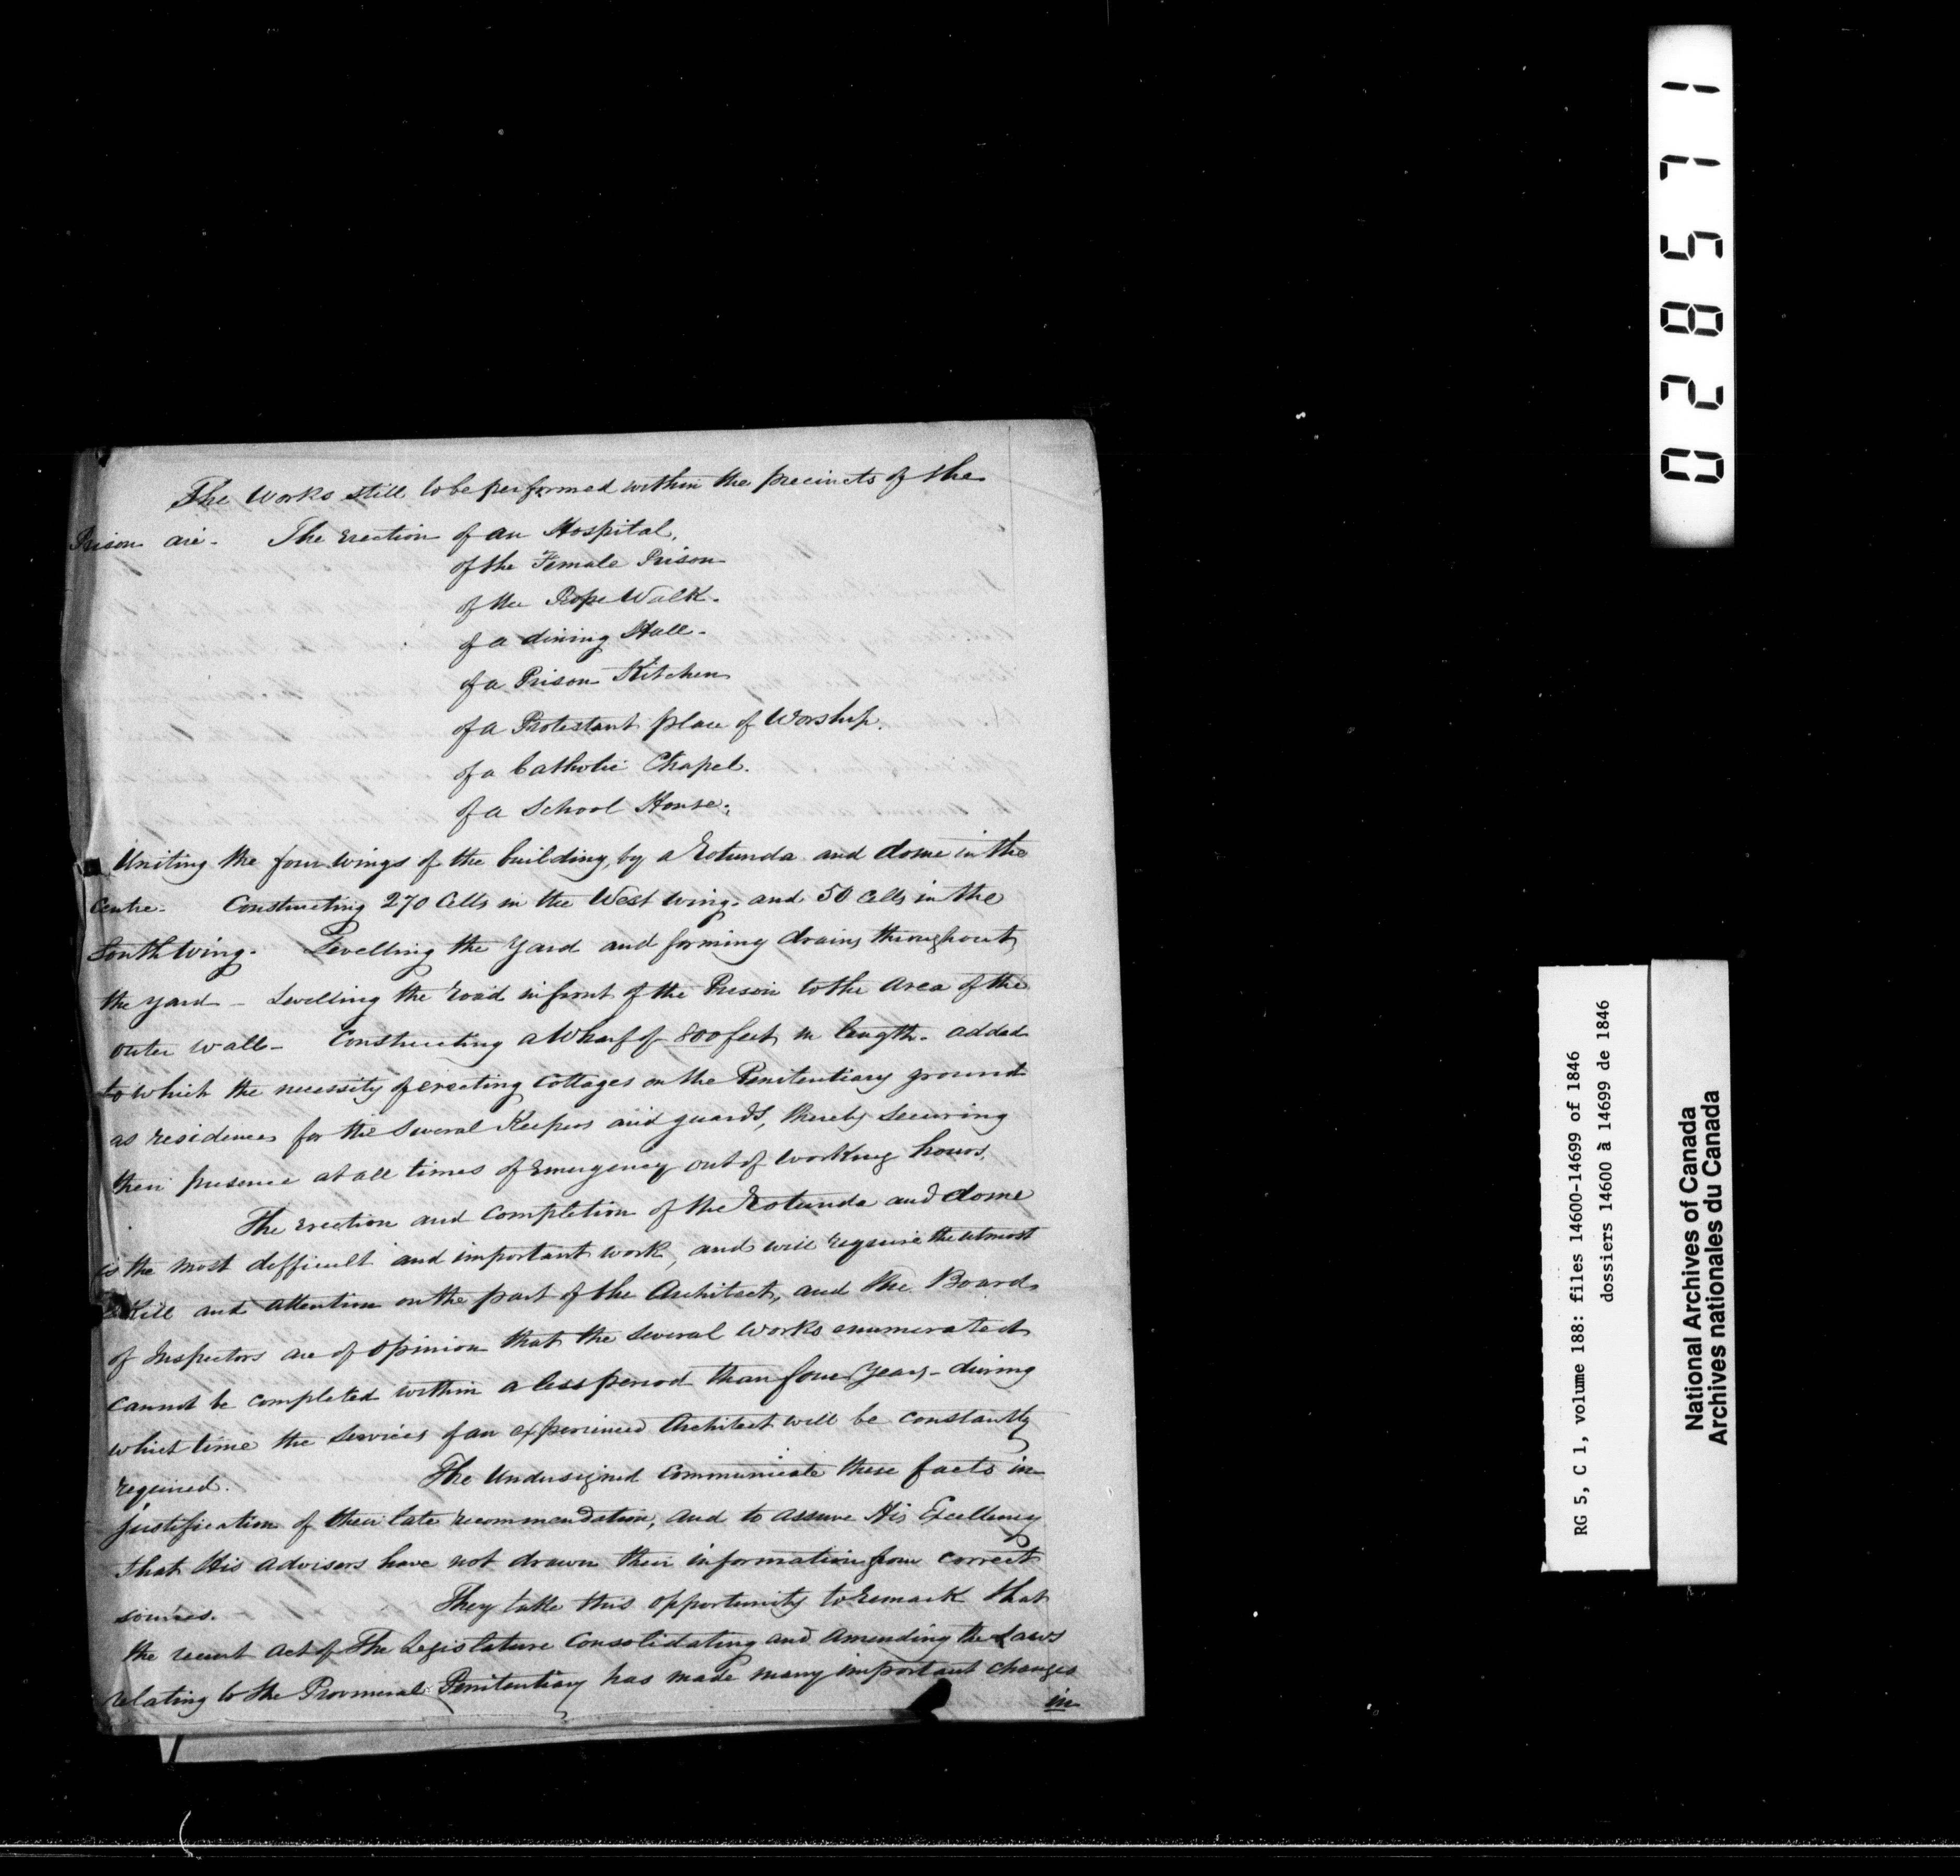 The Works still to be performed within the precincts of the
Prison are - The Erection of an Hospital,
of the Female Prison
of the Rope Walk -
of a dining Hall -
of a Prison Kitchen
of a Protestant place of Worship.
of a Catholic Chapel.
of a School House;
Uniting the four wings of the building, by a Rotunda and dome in the
Centre - Constructing 270 Cells in the West wing - and 50 Cells in the
South Wing - Levelling the Yard and forming drains throughout
the yard - Levelling the road in front of the Prison to the area of the
outer wall - Constructing a Wharf of 800 feet in length - added
to which the necessity of erecting Cottages on the Penitentiary ground
as residences for the Several Keepers and guards, thereby Securing
their presence at all times of Emergency out of working hours.
The Erection and Completion of the Rotunda and dome
is the most difficult and important work, and will require the utmost
Skill and attention on the part of the Architect, and the Board
of Inspectors are of opinion that the Several works enumerated
cannot be completed within a less period than four Years - during
which time the Services of an experienced Architect will be constantly
required. The Undersigned Communicate these facts in
justification of their late recommendation, and to assure His Excellency
that His advisors have not drawn their information from correct
sources. They take this opportunity to remark that
the recent Act of The Legislature Consolidating and Amending the Laws
relating to the Provincial Penitentiary has made many important changes
in
028571
RG 5, C 1, volume 188: files 14600-14699 of 1846
dossiers 14600 à 14699 de 1846
National Archives of Canada
Archives nationales du Canada